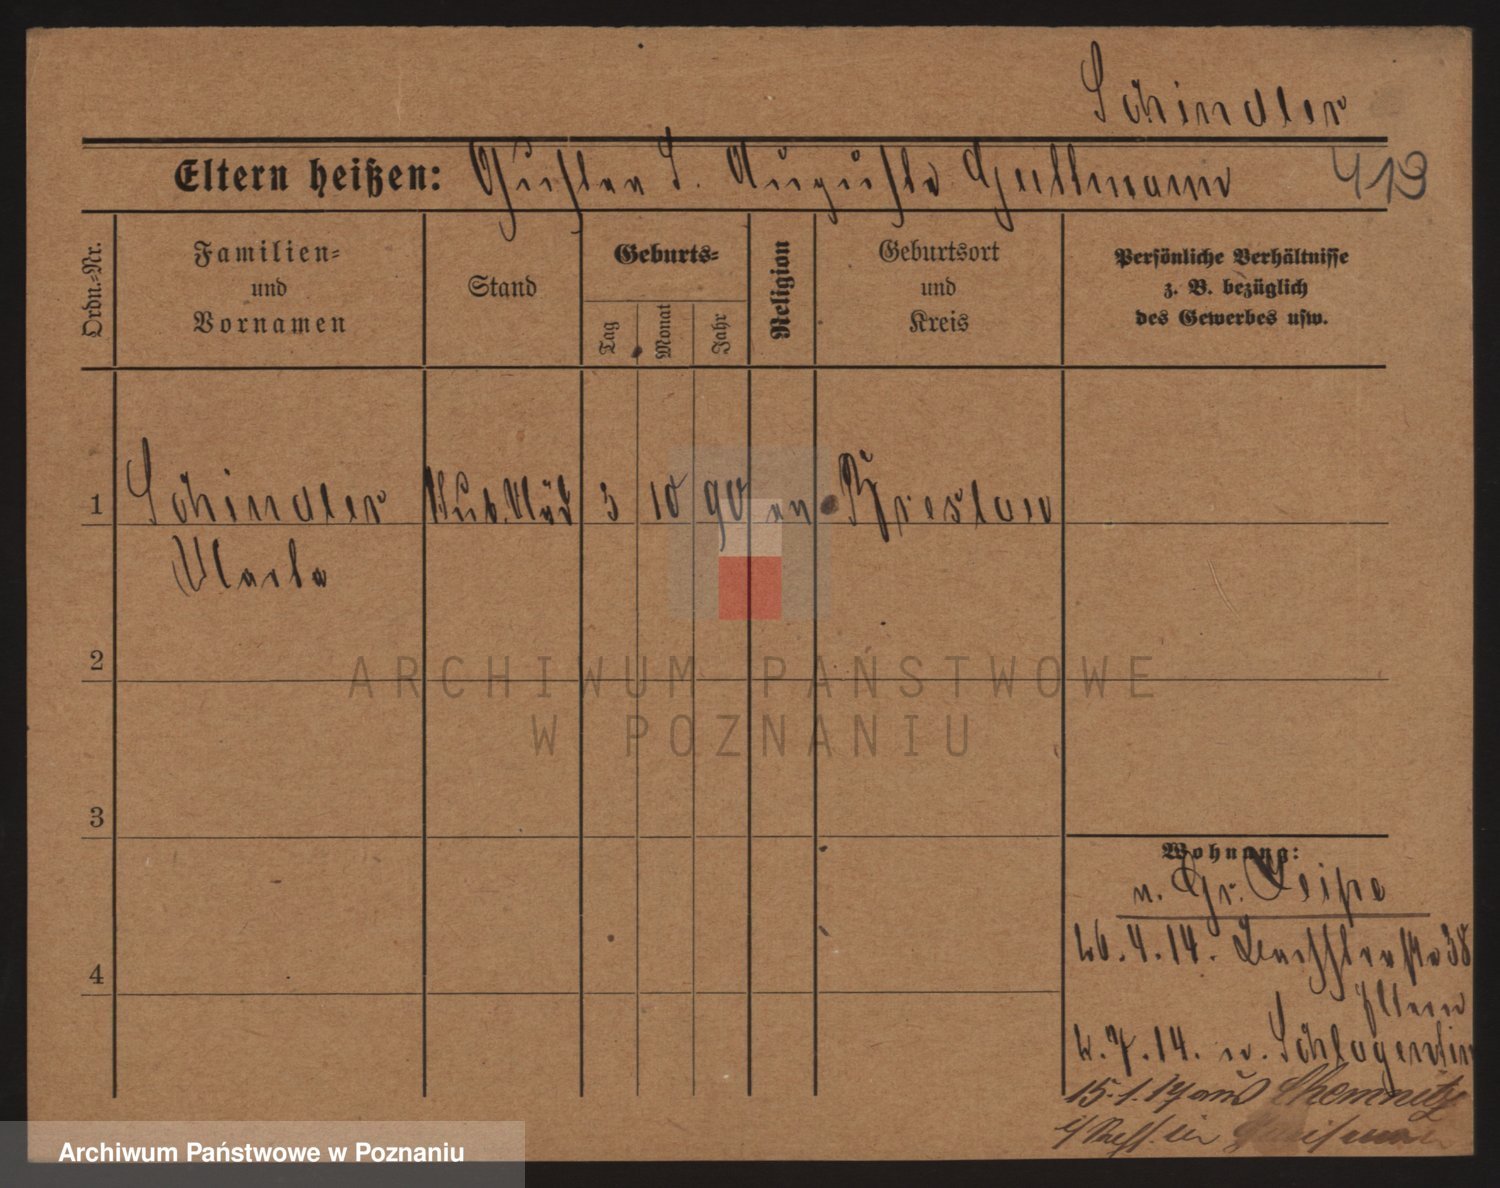 Schindler
Eltern heißen: Gustav S. Auguste Gullmann 419
Ordn.-Nr.
Familien-
und
Vornamen
Stand
Geburts-
Tag
Monat
Jahr
Religion
Geburtsort
und
Kreis
Persönliche Verhältnisse
z. B. bezüglich
des Gewerbes usw.
1 Schindler 3 10 90 ev Breslau
2
3
4
Wohnung:
n. Gr. Leipe
26.4.14. 38
Eltern
2.7.14. n.
15.1.17 aus Chemnitz
ARCHIWUM PAŃSTWOWE
W POZNANIU
Archiwum Państwowe w Poznaniu